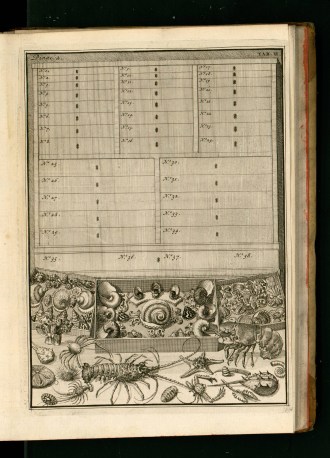 TAB. II.
N.º 1. N.º 9. N.º 17.
N.º 2. N.º 10. N.º 18.
N.º 3. N.º 11. N.º 19.
N.º 4. N.º 12. N.º 20.
N.º 5. N.º 13. N.º 21.
N.º 6. N.º 14. N.º 22.
N.º 7. N.º 15. N.º 23.
N.º 8. N.º 16. N.º 24.
N.º 25. N.º 30.
N.º 26. N.º 31.
N.º 27. N.º 32.
N.º 28. N.º 33.
N.º 29. N.º 34.
N.º 35. N.º 36. N.º 37. N.º 38.